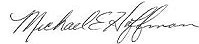 Michael E Hoffman